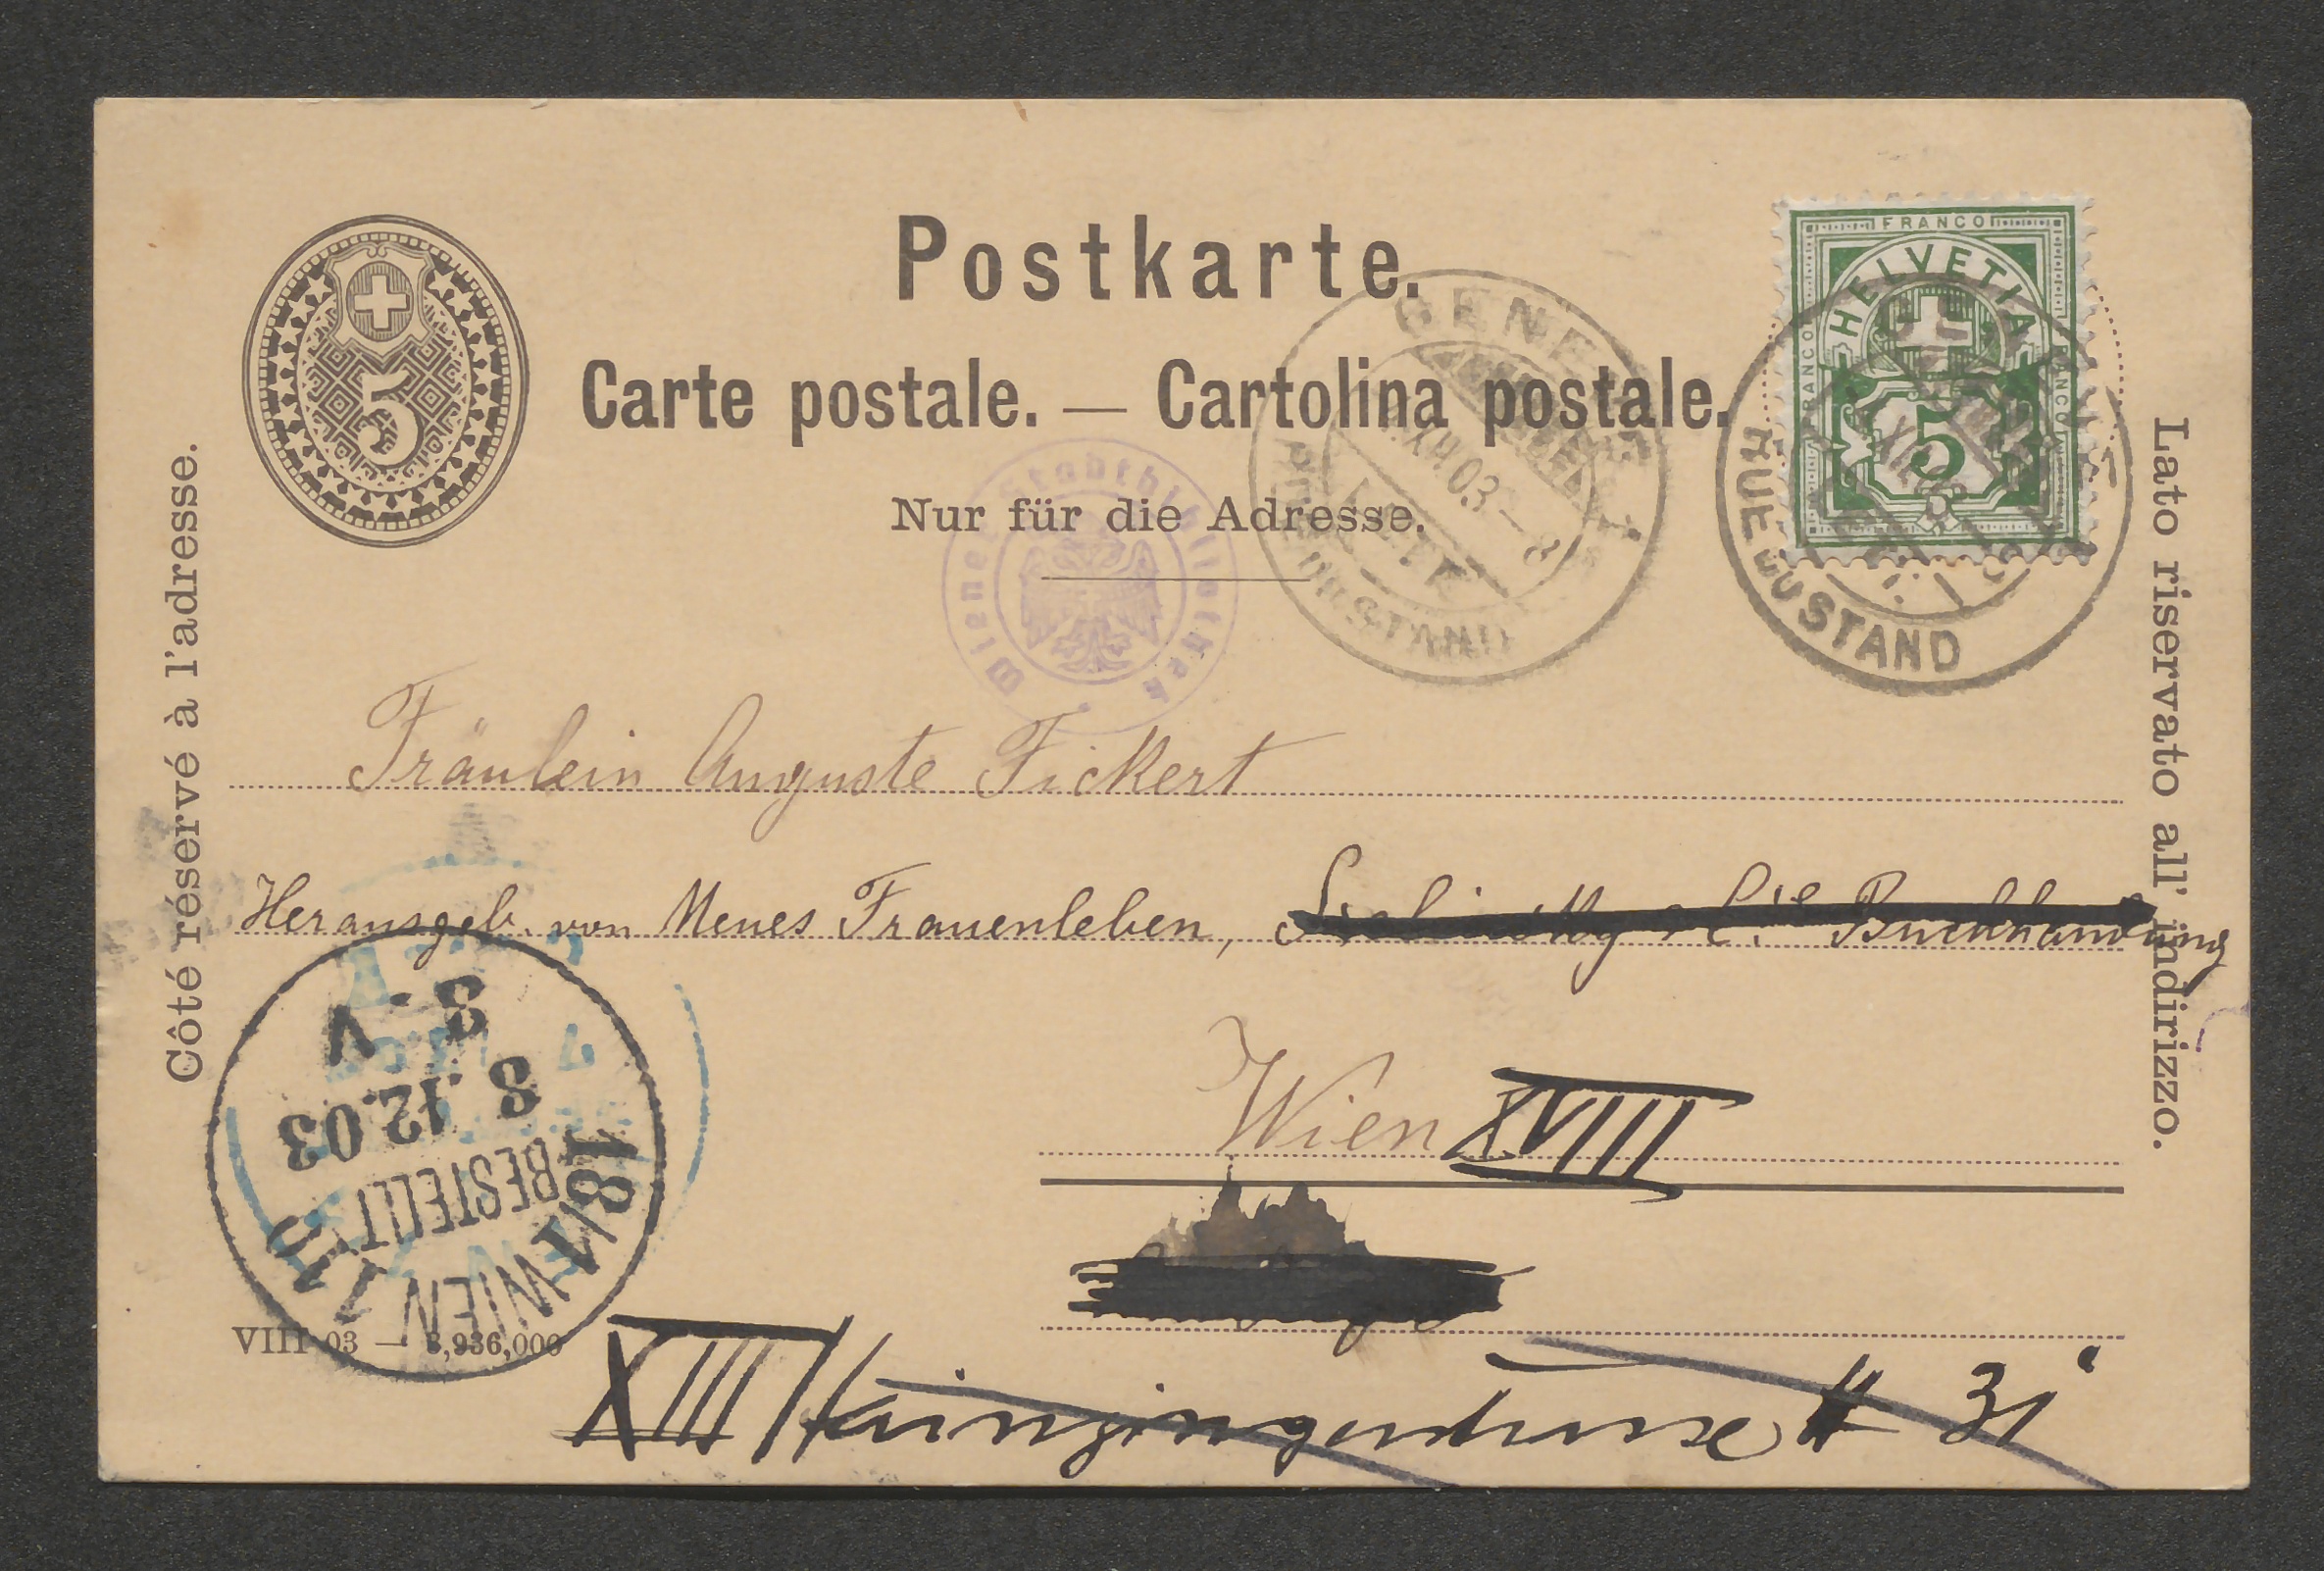 Postkarte.
Carte postale. — Cartolina postale.
Nur für die Adresse.
Côté réservé à l'adresse.
Lato riservato all' indirizzo.
5
FRANCO
HELVETIA
FRANCO
FRANCO
5
GENÈVE
XII 03 — 8
RUE DU STAND
RUE DU STAND
Wiener Stadtbibliothek
Fräulein Auguste Fickert
Herausgeb. von Neues Frauenleben, & Cie Buchhandlung
Wien XVIII
XIII 31
18/1 WIEN 115
BESTELLT
8.12.03
8-V
VIII 03 — 3,936,000